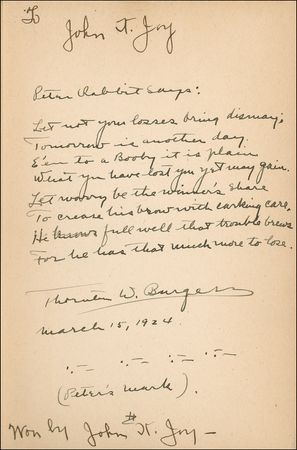 To
John H. Joy
Peter Rabbit Says:
Let not your losses bring dismay;
Tomorrow is another day.
E'en to a Booby it is plain
What you have lost you yet may gain.
Let worry be the winner's share
To crease his brow with carking care.
He knows full well that trouble brews
For he has that much more to lose.
Thornton W. Burgess
March 15, 1924
(Peter's mark).
Won by John H. Joy —